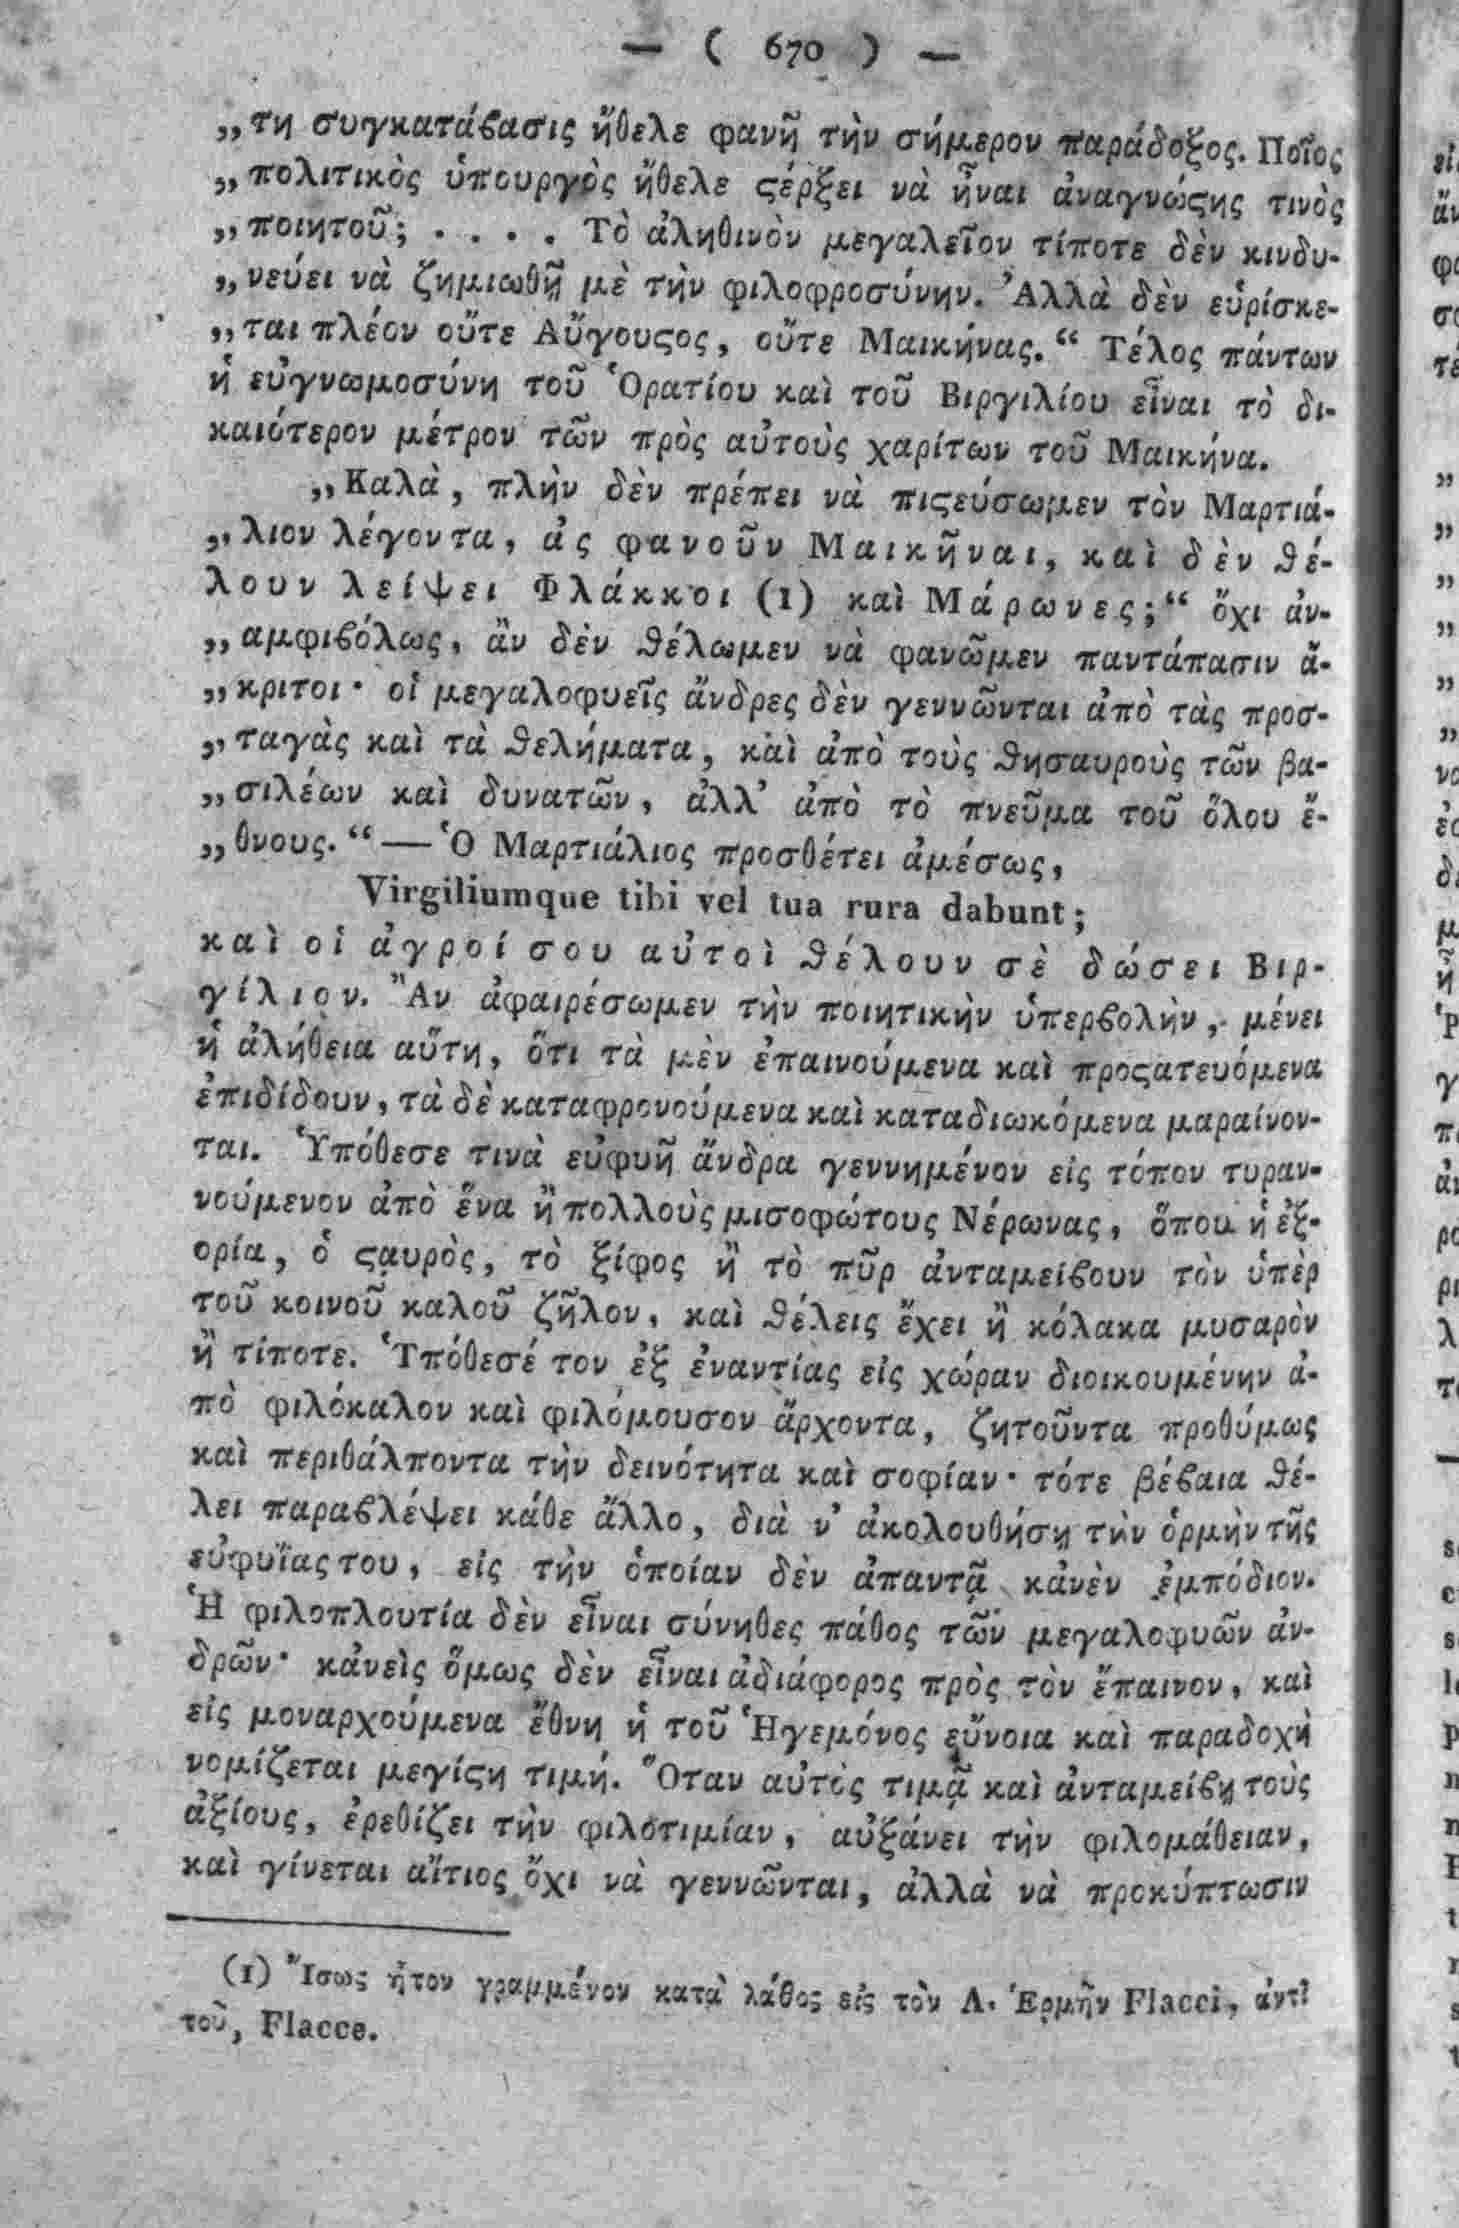 — ( 670 ) —
„τη συγκατάϐασις ἤθελε φανῆ τὴν σήμερον παράδοξος. Ποῖος
„πολιτικὸς ὑπουργὸς ἤθελε ϛέρξει νὰ ἦναι ἀναγνώϛης τινὸς
„ποιητοῦ; . . . . Τὸ ἀληθινὸν μεγαλεῖον τίποτε δὲν κινδυ-
„νεύει νὰ ζημιωθῇ μὲ τὴν φιλοφροσύνην. Ἀλλὰ δὲν εὑρίσκε-
„ται πλέον οὔτε Αὔγουϛος, οὔτε Μαικήνας.“ Τέλος πάντων
ἡ εὐγνωμοσύνη τοῦ Ὁρατίου καὶ τοῦ Βιργιλίου εἶναι τὸ δι-
καιότερον μέτρον τῶν πρὸς αὐτοὺς χαρίτων τοῦ Μαικήνα.
„Καλὰ, πλὴν δὲν πρέπει νὰ πιϛεύσωμεν τὸν Μαρτιά-
„λιον λέγοντα, ἀς φανοῦν Μαικῆναι, καὶ δὲν θέ-
λουν λείψει Φλάκκοι (1) καὶ Μάρωνες;“ ὄχι ἀν-
„αμφιϐόλως, ἂν δὲν θέλωμεν νὰ φανῶμεν παντάπασιν ἄ-
„κριτοι· οἱ μεγαλοφυεῖς ἄνδρες δὲν γεννῶνται ἀπὸ τὰς προσ-
„ταγὰς καὶ τὰ θελήματα, καὶ ἀπὸ τοὺς θησαυροὺς τῶν βα-
„σιλέων καὶ δυνατῶν, ἀλλ’ ἀπὸ τὸ πνεῦμα τοῦ ὅλου ἔ-
„θνους.“ — Ὁ Μαρτιάλιος προσθέτει ἀμέσως,
Virgiliumque tibi vel tua rura dabunt;
καὶ οἱ ἀγροί σου αὐτοὶ θέλουν σὲ δώσει Βιρ-
γίλιον. Ἂν ἀφαιρέσωμεν τὴν ποιητικὴν ὑπερϐολὴν, μένει
ἡ ἀλήθεια αὕτη, ὅτι τὰ μὲν ἐπαινούμενα καὶ προϛατευόμενα
ἐπιδίδουν, τὰ δὲ καταφρονούμενα καὶ καταδιωκόμενα μαραίνον-
ται. Ὑπόθεσε τινὰ εὐφυῆ ἄνδρα γεννημένον εἰς τόπον τυραν-
νούμενον ἀπὸ ἕνα ἢ πολλοὺς μισοφώτους Νέρωνας, ὅπου ἡ ἐξ-
ορία, ὁ ϛαυρὸς, τὸ ξίφος ἢ τὸ πῦρ ἀνταμείϐουν τὸν ὑπὲρ
τοῦ κοινοῦ καλοῦ ζῆλον, καὶ θέλεις ἔχει ἢ κόλακα μυσαρὸν
ἢ τίποτε. Ὑπόθεσέ τον ἐξ ἐναντίας εἰς χώραν διοικουμένην ἀ-
πὸ φιλόκαλον καὶ φιλόμουσον ἄρχοντα, ζητοῦντα προθύμως
καὶ περιθάλποντα τὴν δεινότητα καὶ σοφίαν· τότε βέϐαια θέ-
λει παραϐλέψει κάθε ἄλλο, διὰ ν’ ἀκολουθήσῃ τὴν ὁρμὴν τῆς
εὐφυΐας του, εἰς τὴν ὁποίαν δὲν ἀπαντᾷ κἀνὲν ἐμπόδιον.
Ἡ φιλοπλουτία δὲν εἶναι σύνηθες πάθος τῶν μεγαλοφυῶν ἀν-
δρῶν· κἀνεὶς ὅμως δὲν εἶναι ἀδιάφορος πρὸς τὸν ἔπαινον, καὶ
εἰς μοναρχούμενα ἔθνη ἡ τοῦ Ἡγεμόνος εὔνοια καὶ παραδοχὴ
νομίζεται μεγίϛη τιμή. Ὅταν αὐτὸς τιμᾷ καὶ ἀνταμείϐῃ τοὺς
ἀξίους, ἐρεθίζει τὴν φιλοτιμίαν, αὐξάνει τὴν φιλομάθειαν,
καὶ γίνεται αἴτιος ὄχι νὰ γεννῶνται, ἀλλὰ νὰ προκύπτωσιν
(1) Ἴσως ἦτον γραμμένον κατὰ λάθος εἰς τὸν Λ. Ἑρμῆν Flacci, ἀντὶ
τοῦ, Flacce.